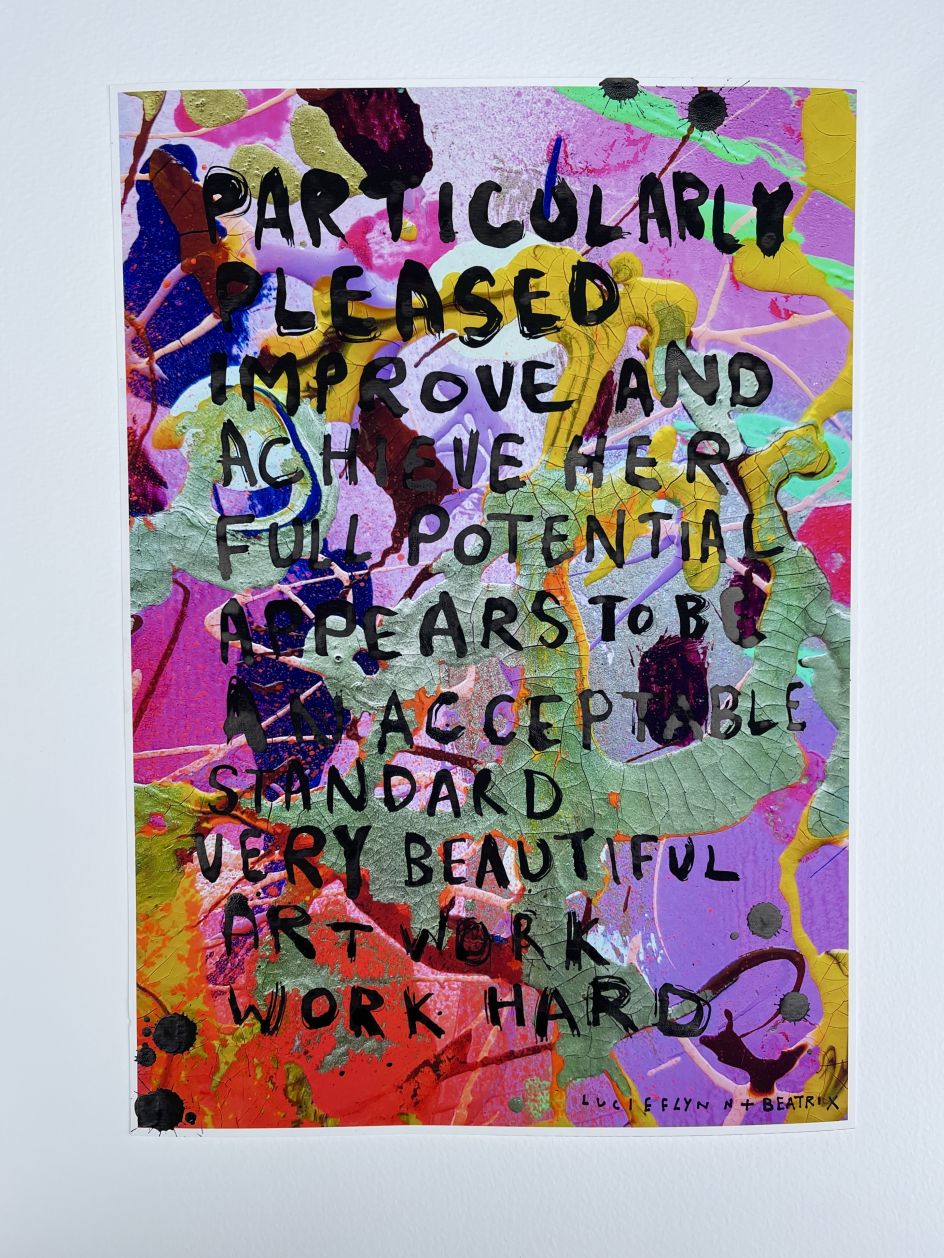 PARTICULARLY
PLEASED
IMPROVE AND
ACHIEVE HER
FULL POTENTIAL
APPEARS TO BE
AN ACCEPTABLE
STANDARD
VERY BEAUTIFUL
ART WORK
WORK HARD
LUCIE FLYNN + BEATRIX